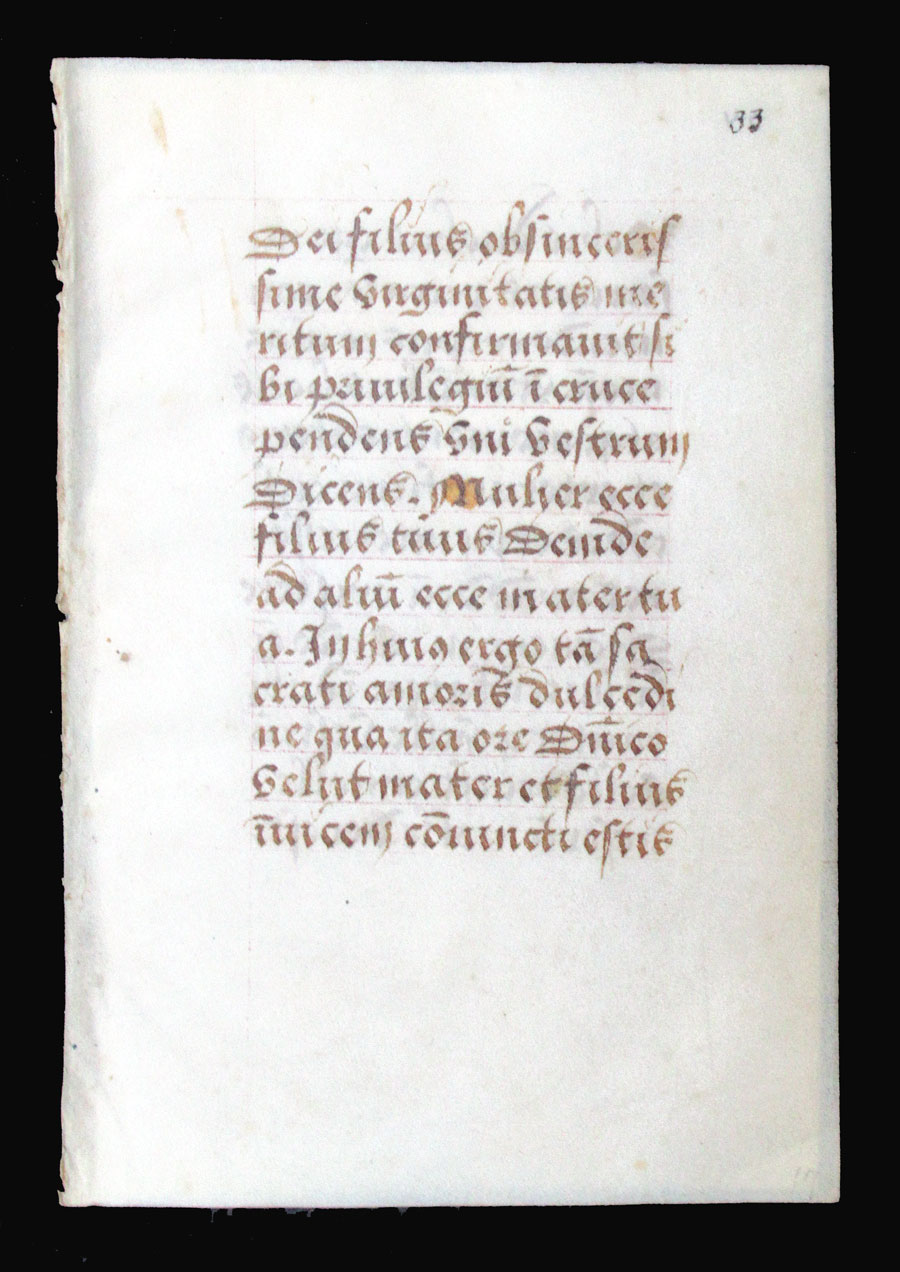 33
Dei filius ob sinceris
sime virginitatis me
ritum confirmavit si
bi privilegiū ī cruce
pendens vni vestrum
Dicens. Mulier ecce
filius tuus Deinde
ad aliū ecce mater tu
a. In huiꝯ ergo tā sa
crati amoris dulcedi
ne qua ita ore Dn̄ico
velut mater et filius
īuicem cōiuncti estis